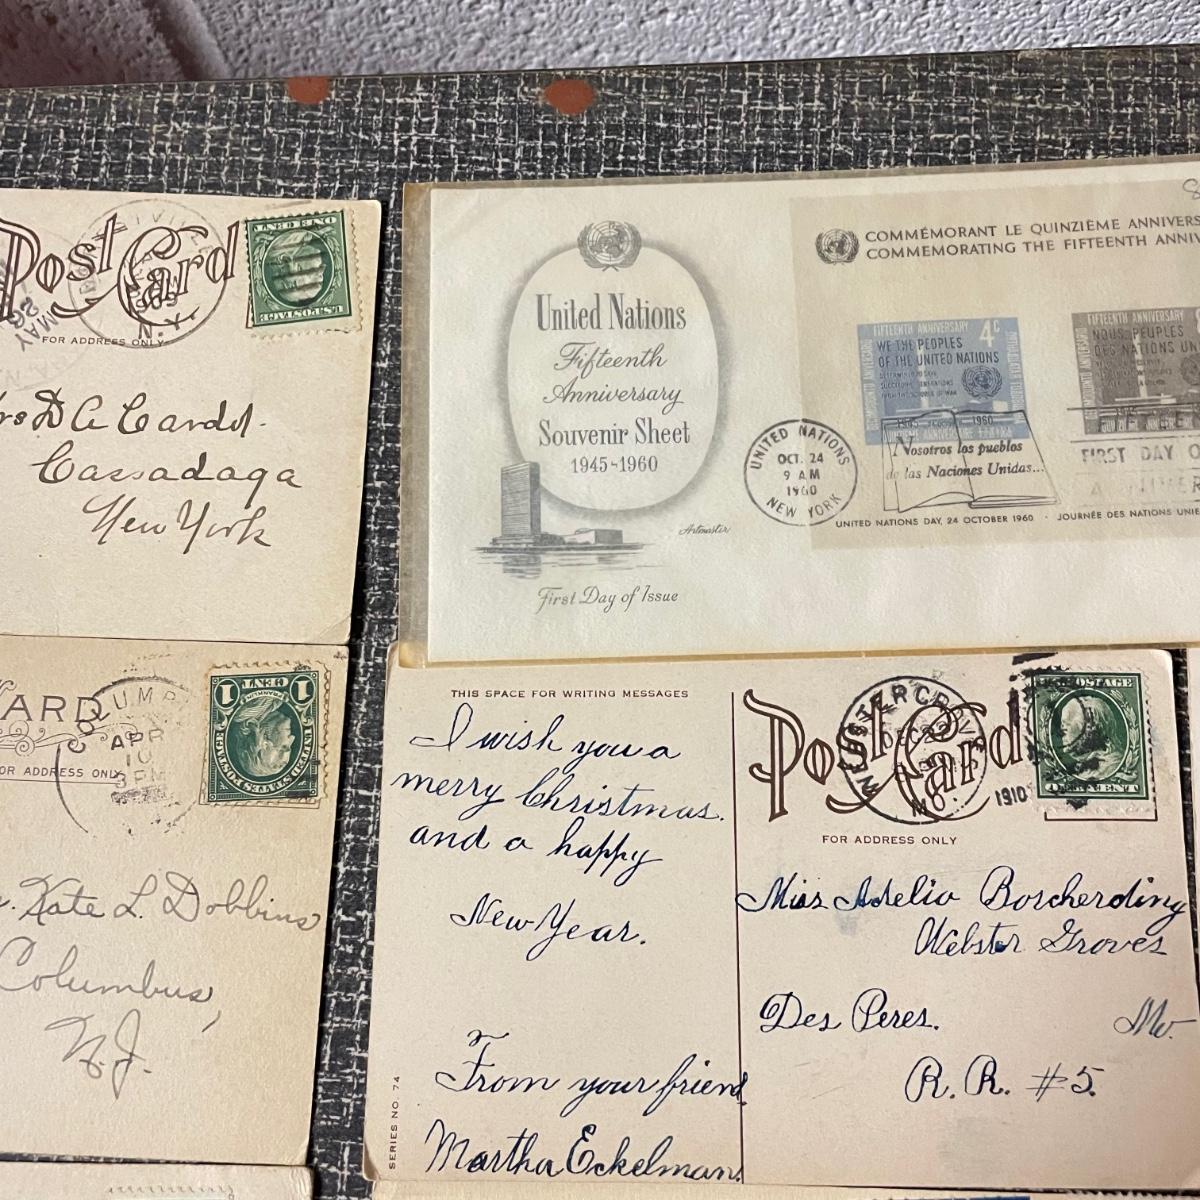 Post Card
N.Y.
MAY
26
ONE CENT
U.S. POSTAGE
FOR ADDRESS ONLY
D A Cardot.
Cassadaga
New York
United Nations
Fifteenth
Anniversary
Souvenir Sheet
1945-1960
Artmaster
First Day of Issue
COMMÉMORANT LE QUINZIÈME ANNIVERS
COMMEMORATING THE FIFTEENTH ANNIV
FIFTEENTH ANNIVERSARY 4c
WE THE PEOPLES
OF THE UNITED NATIONS
FIFTEENTH ANNIVERSARY
NOUS PEUPLES
DES NATIONS UN
UNITED NATIONS
OCT. 24
9 AM
1960
NEW YORK
1945 1960
Nosotros los pueblos
de las Naciones Unidas...
FIRST DAY O
UNITED NATIONS DAY, 24 OCTOBER 1960 · JOURNÉE DES NATIONS UNIE
ARD
OR ADDRESS ONLY
COLUMB
APR
10
3 PM
1 CENT 1
FRANKLIN
UNITED STATES POSTAGE
Kate L. Dobbins
Columbus,
N.J.
THIS SPACE FOR WRITING MESSAGES
I wish you a
merry Christmas.
and a happy
New Year.
From your friend
Martha Eckelman.
SERIES NO. 74
Post Card
WEBSTER GROVES
DEC
MO.
1910
POSTAGE
ONE CENT
FOR ADDRESS ONLY
Miss Adelia Borcherding
Webster Groves
Des Peres. Mo.
R. R. #5.